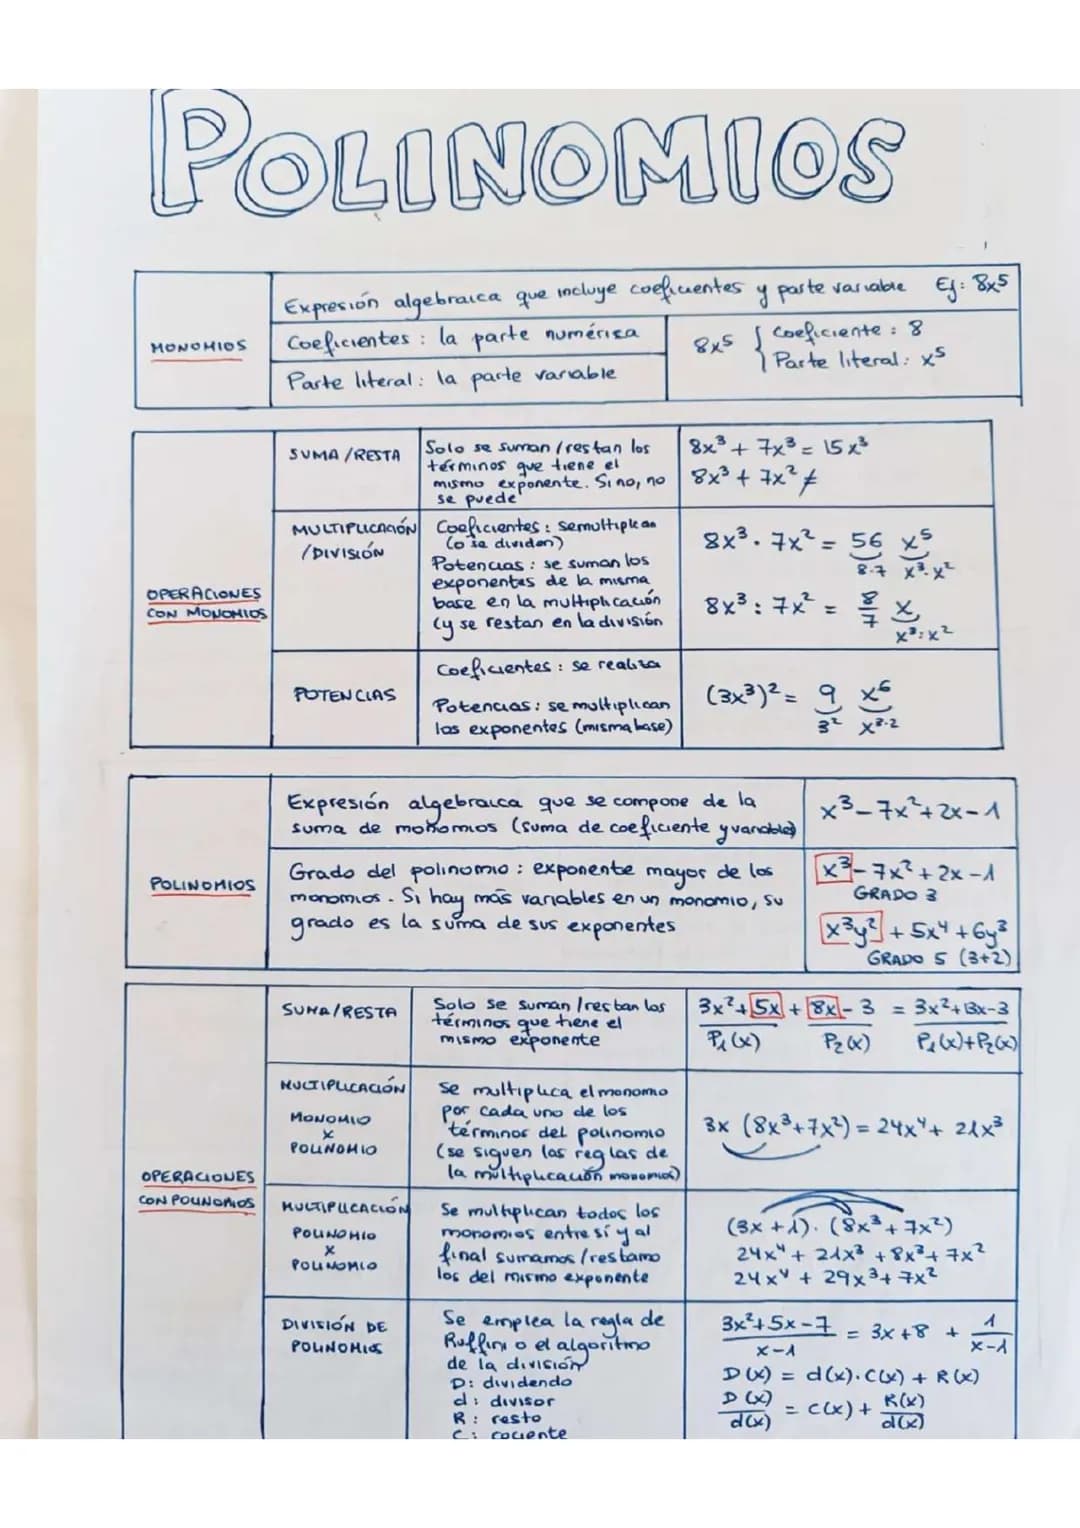 POLINOMIOS
MONOMIOS
Expresión algebraica que incluye coeficientes y parte variable Ej: 8x⁵
Coeficientes : la parte numérica
Parte literal: la parte variable
8x⁵ { Coeficiente : 8
Parte literal: x⁵
OPERACIONES
CON MONOMIOS
SUMA/RESTA
Solo se suman/restan los
términos que tiene el
mismo exponente. Si no, no
se puede
8x³ + 7x³ = 15x³
8x³ + 7x² ≠
MULTIPLICACIÓN
/DIVISIÓN
Coeficientes : se multiplican
(o se dividen)
Potencias : se suman los
exponentes de la misma
base en la multiplicación
(y se restan en la división
8x³ · 7x² = 56 x⁵
8·7 x³·x²
8x³ : 7x² = 8/7 x
x³:x²
POTENCIAS
Coeficientes : se realiza
Potencias : se multiplican
los exponentes (misma base)
(3x³)² = 9 x⁶
3² x³·²
POLINOMIOS
Expresión algebraica que se compone de la
suma de monomios (suma de coeficiente y variable)
x³ - 7x² + 2x - 1
Grado del polinomio : exponente mayor de los
monomios. Si hay más variables en un monomio, su
grado es la suma de sus exponentes
x³ - 7x² + 2x - 1
GRADO 3
x³y² + 5x⁴ + 6y³
GRADO 5 (3+2)
OPERACIONES
CON POLINOMIOS
SUMA/RESTA
Solo se suman/restan los
términos que tiene el
mismo exponente
3x² + 5x + 8x - 3 = 3x² + 13x - 3
P₁(x) P₂(x) P₁(x)+P₂(x)
MULTIPLICACIÓN
MONOMIO
x
POLINOMIO
Se multiplica el monomio
por cada uno de los
términos del polinomio
(se siguen las reglas de
la multiplicación monomios)
3x (8x³ + 7x²) = 24x⁴ + 21x³
MULTIPLICACIÓN
POLINOMIO
x
POLINOMIO
Se multiplican todos los
monomios entre sí y al
final sumamos/restamo
los del mismo exponente
(3x + 1) · (8x³ + 7x²)
24x⁴ + 21x³ + 8x³ + 7x²
24x⁴ + 29x³ + 7x²
DIVISIÓN DE
POLINOMIOS
Se emplea la regla de
Ruffini o el algoritmo
de la división
D: dividendo
d: divisor
R: resto
C: cociente
3x² + 5x - 7 / x - 1 = 3x + 8 + 1 / x - 1
D(x) = d(x)·C(x) + R(x)
D(x)/d(x) = C(x) + R(x)/d(x)